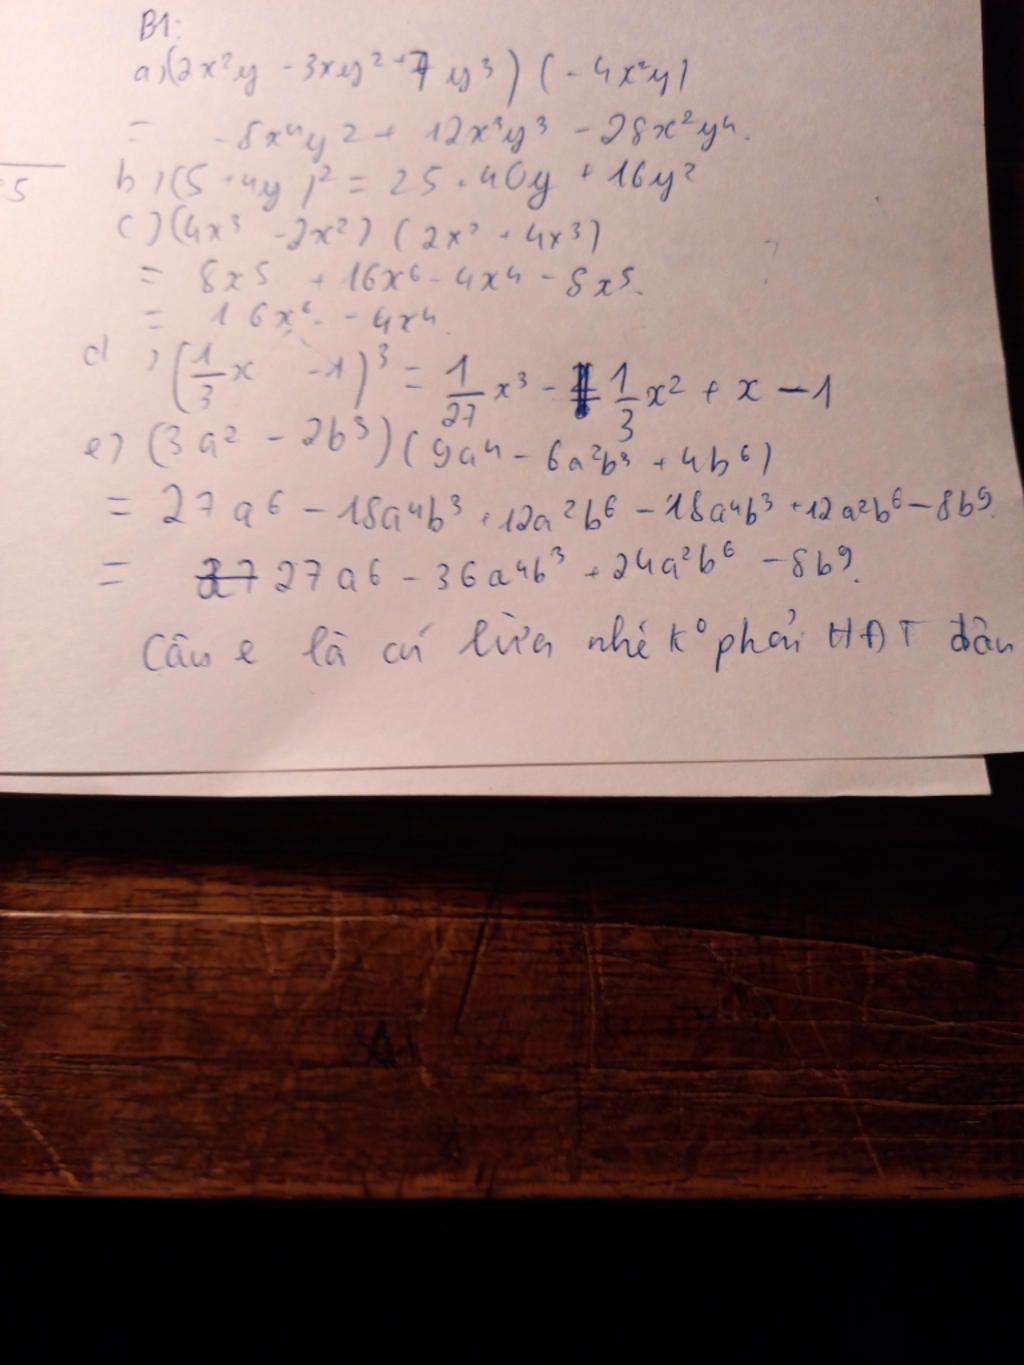 B1:
a) (2x²y - 3xy² + 7y³) (-4x²y)
= -8x⁴y² + 12x³y³ - 28x²y⁴.
5
b) (5 + 4y)² = 25 + 40y + 16y²
c) (4x³ - 2x²) (2x² + 4x³)
= 8x⁵ + 16x⁶ - 4x⁴ - 8x⁵.
= 16x⁶ - 4x⁴.
d) (1/3 x - 1)³ = 1/27 x³ - 1/3 x² + x - 1
e) (3a² - 2b³) (9a⁴ - 6a²b³ + 4b⁶)
= 27a⁶ - 18a⁴b³ + 12a²b⁶ - 18a⁴b³ + 12a²b⁶ - 8b⁹.
= 27 27a⁶ - 36a⁴b³ + 24a²b⁶ - 8b⁹.
Câu e là cú lừa nhé k° phải HĐT đâu